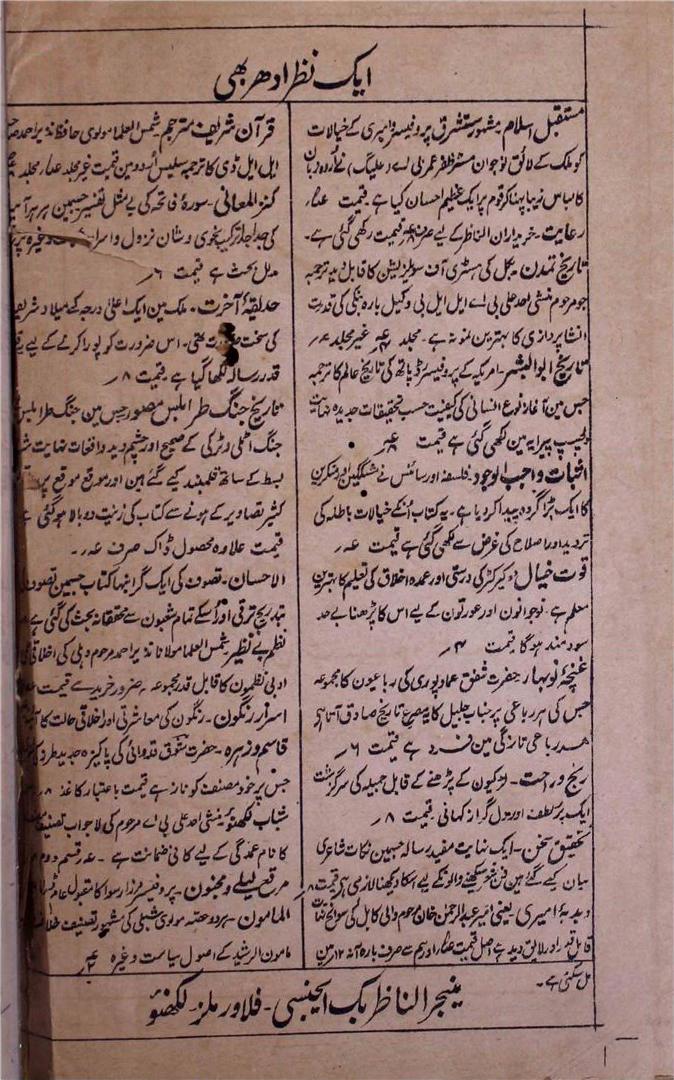 ایک نظر ادھر بھی
مستقبل اسلام۔ مشہور مستشرق پروفیسر وامبری کے خیالات
کو ملک کے لائق نوجوان مسٹر ظفر عمر بی اے (علیگ) نے اُردو زبان
کا لباس زیبا پہنا کر قوم پر ایک عظیم احسان کیا ہے۔ قیمت
رعایت۔ خریداران الناظر کے لیے صرف قیمت رکھی گئی ہے۔
تاریخ تمدن۔ بکل کی ہسٹری آف سولزیشن کا قابل دید ترجمہ
جو مرحوم منشی احد علی بی اے ایل ایل بی وکیل بارہ بنکی کی قدرت
انشا پردازی کا بہترین نمونہ ہے۔ مجلد غیر مجلد
تاریخ ابو البشر۔ امریکہ کے پروفیسر کی تاریخ عالم کا ترجمہ
جس مین آغاز نوع انسانی کی کیفیت حسب تحقیقات جدیدہ نہایت
دلچسپ پیرایہ مین لکھی گئی ہے قیمت
اثبات واجب الوجود۔ فلسفہ اور سائنس نے مشککین اور منکرین
کا ایک بڑا گروہ پیدا کر دیا ہے۔ یہ کتاب اُنکے خیالات باطلہ کی
تردید اور اصلاح کی غرض سے لکھی گئی ہے قیمت
قوت خیال۔ کیرکٹر کی درستی اور عمدہ اخلاق کی تعلیم کا بہترین
معلم ہے۔ نوجوانون اور عورتون کے لیے اس کا پڑھنا بے حد
سودمند ہوگا قیمت ۴؍
غنچۂ نوبہار۔ حضرت شفق عمادپوری کی رباعیون کا مجموعہ
جس کی ہر رباعی پر جناب جلیل کا یہ مصرع تاریخ صادق آتا ہے
ہر رباعی تازگی مین فرد ہے قیمت ۶؍
رنج و راحت۔ لڑکیون کے پڑھنے کے قابل جمیلہ کی سرگزشت
ایک پر لطف اور دل گداز کہانی۔ قیمت ۸؍
تحقیق سخن۔ ایک نہایت مفید رسالہ جسمین نکات شاعری
بیان کیے گئے ہین فن شعر سیکھنے والونکے لیے اسکا دیکھنا لازمی ہے قیمت ۸؍
دبدبۂ امیری یعنی امیر عبدالرحمٰن خان مرحوم والی کابل کی سوانح
قابل قدر اور لایق دید ہے اصل قیمت اور ہم سے صرف بارہ آنہ ۱۲؍ مین
مل سکتی ہے۔
قرآن شریف مترجم شمس العلما مولوی حافظ نذیر احمد
ایل ایل ڈی کا ترجمہ سلیس اُردو مین قیمت غیر مجلد مجلد
کنز المعانی۔ سورۂ فاتحہ کی بے مثل تفسیر جسمین ہر ہر
کی جدا جدا ترکیب نحوی و شان نزول و اسرار وغیرہ پر
مدلل بحث ہے قیمت ۶؍
حدیقۂ آخرت۔ ملک مین ایک اعلیٰ درجہ کے میلاد شریف
کی سخت ضرورت تھی۔ اس ضرورت کو پورا کرنے کے لیے
قدر رسالہ لکھا گیا ہے۔ قیمت ۸؍
تاریخ جنگ طرابلس مصور جس مین جنگ طرابلس
جنگ اٹلی و ٹرکی کے صحیح اور چشم دید واقعات نہایت
بسط کے ساتھ قلمبند کیے گئے ہین اور موقع موقع پر
کثیر تصاویر کے ہونے سے کتاب کی زینت دوبالا ہو گئی ہے
قیمت علاوہ محصول ڈاک صرف
الاحسان۔ تصوف کی ایک گرانبہا کتاب جسمین تصوف
بتدریج ترقی اور اُسکے تمام شعبون سے محققانہ بحث کی گئی ہے
نظم بے نظیر شمس العلما مولانا نذیر احمد مرحوم دہلی کی اخلاقی
ادبی نظمون کا قابل قدر مجموعہ۔ ضرور خریدیے قیمت
اسرار رنگون۔ رنگون کی معاشرتی اور اخلاقی حالت کا
قاسم و زہرہ۔ حضرت شوق قدوائی کی پاکیزہ جدید طرز
جس پر خود مصنف کو ناز ہے قیمت باعتبار کاغذ ۸؍
شباب لکھنؤ منشی احد علی بی اے مرحوم کی لاجواب تصنیف
کا نام عمدگی کے لیے کافی ضمانت ہے۔ قسم دوم
مرقع لیلے و مجنون۔ پروفیسر مرزا رسوا کا مقبول عام
المامون۔ ہر دو حصہ مولوی شبلی کی مشہور تصنیف
مامون الرشید کے اصول سیاست وغیرہ
منیجر الناظر بک ایجنسی۔ فلاور ملز۔ لکھنؤ